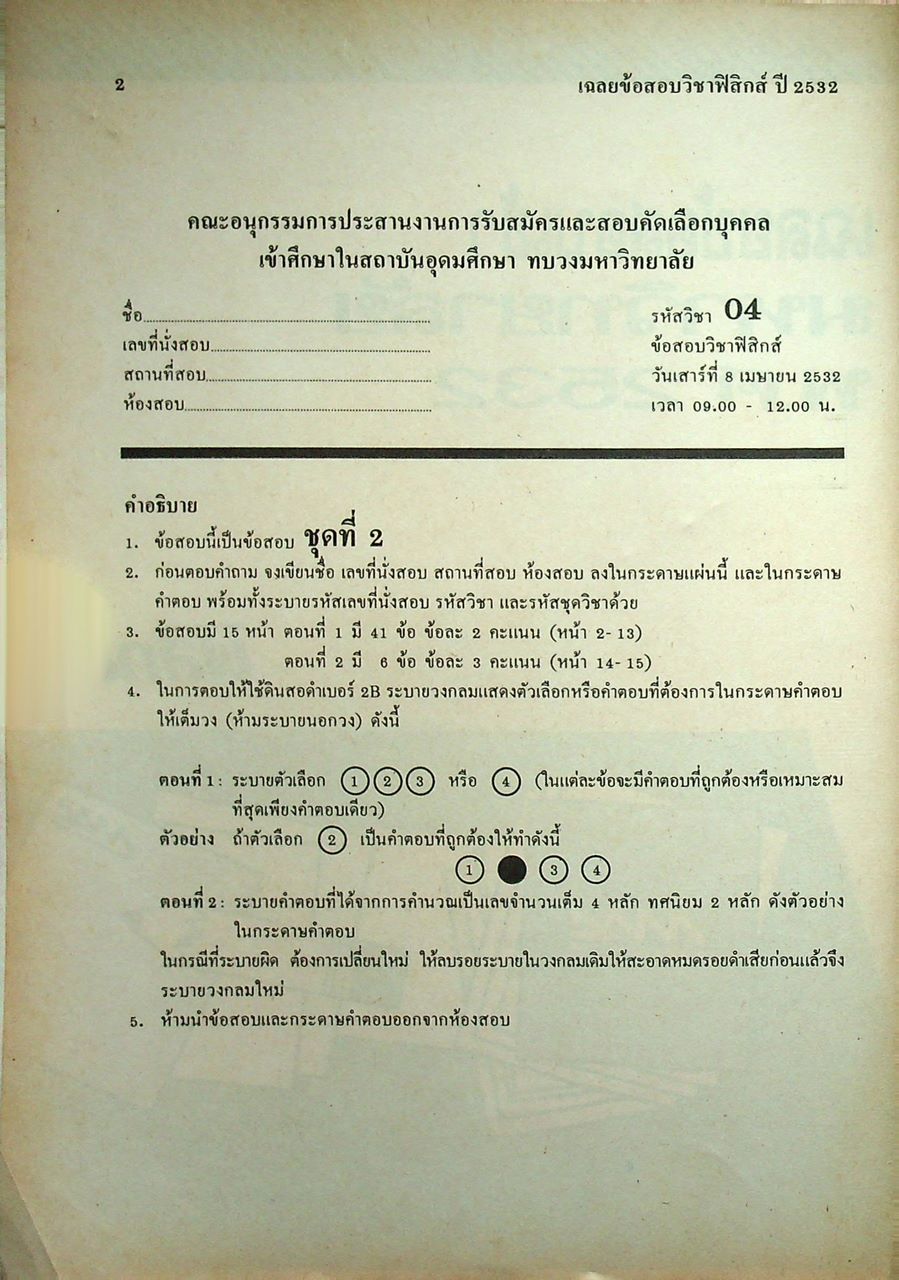 2
เฉลยข้อสอบวิชาฟิสิกส์ ปี 2532
คณะอนุกรรมการประสานงานการรับสมัครและสอบคัดเลือกบุคคล
เข้าศึกษาในสถาบันอุดมศึกษา ทบวงมหาวิทยาลัย
ชื่อ
เลขที่นั่งสอบ
สถานที่สอบ
ห้องสอบ
รหัสวิชา 04
ข้อสอบวิชาฟิสิกส์
วันเสาร์ที่ 8 เมษายน 2532
เวลา 09.00 - 12.00 น.
คำอธิบาย
1. ข้อสอบนี้เป็นข้อสอบ ชุดที่ 2
2. ก่อนตอบคำถาม จงเขียนชื่อ เลขที่นั่งสอบ สถานที่สอบ ห้องสอบ ลงในกระดาษแผ่นนี้ และในกระดาษ
คำตอบ พร้อมทั้งระบายรหัสเลขที่นั่งสอบ รหัสวิชา และรหัสชุดวิชาด้วย
3. ข้อสอบมี 15 หน้า ตอนที่ 1 มี 41 ข้อ ข้อละ 2 คะแนน (หน้า 2-13)
ตอนที่ 2 มี 6 ข้อ ข้อละ 3 คะแนน (หน้า 14-15)
4. ในการตอบให้ใช้ดินสอดำเบอร์ 2B ระบายวงกลมแสดงตัวเลือกหรือคำตอบที่ต้องการในกระดาษคำตอบ
ให้เต็มวง (ห้ามระบายนอกวง) ดังนี้
ตอนที่ 1 : ระบายตัวเลือก 1 2 3 หรือ 4 (ในแต่ละข้อจะมีคำตอบที่ถูกต้องหรือเหมาะสม
ที่สุดเพียงคำตอบเดียว)
ตัวอย่าง ถ้าตัวเลือก 2 เป็นคำตอบที่ถูกต้องให้ทำดังนี้
1 ● 3 4
ตอนที่ 2 : ระบายคำตอบที่ได้จากการคำนวณเป็นเลขจำนวนเต็ม 4 หลัก ทศนิยม 2 หลัก ดังตัวอย่าง
ในกระดาษคำตอบ
ในกรณีที่ระบายผิด ต้องการเปลี่ยนใหม่ ให้ลบรอยระบายในวงกลมเดิมให้สะอาดหมดรอยดำเสียก่อนแล้วจึง
ระบายวงกลมใหม่
5. ห้ามนำข้อสอบและกระดาษคำตอบออกจากห้องสอบ